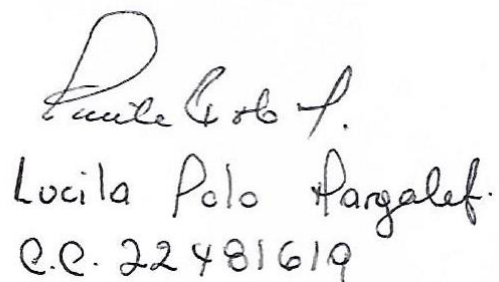 Lucila Polo P.
Lucila Polo Margalef.
C.C. 22481619